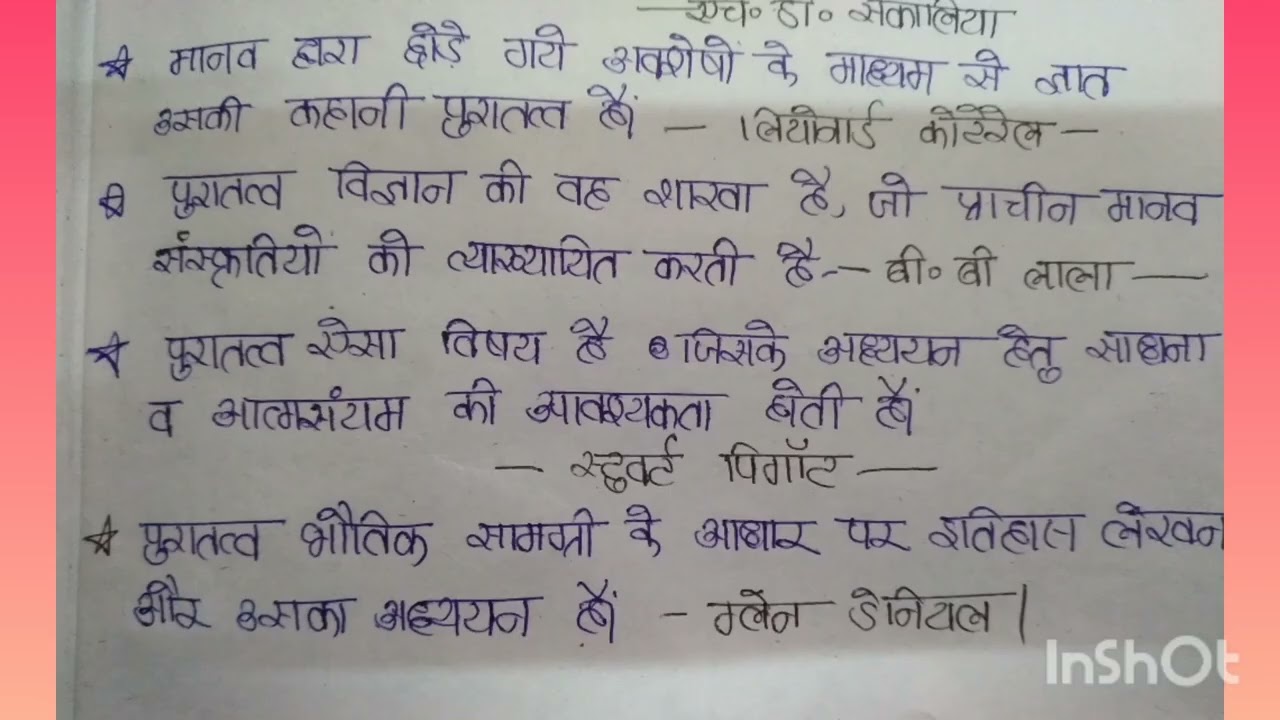 —एच॰ डी॰ संकालिया
☆ मानव द्वारा छोड़े गये अवशेषों के माध्यम से ज्ञात
उसकी कहानी पुरातत्व हैं। — लियोनार्ड कोटरेल —
☆ पुरातत्व विज्ञान की वह शाखा है, जो प्राचीन मानव
संस्कृतियों को व्याख्यायित करती है — बी॰ बी लाला —
☆ पुरातत्व ऐसा विषय है जिसके अध्ययन हेतु साधना
व आत्मसंयम की आवश्यकता होती हैं।
— स्टुवर्ट पिगॉट —
☆ पुरातत्व भौतिक सामग्री के आधार पर इतिहास लेखन
और उसका अध्ययन हैं। – ग्लेन डेनियल |
InShOt